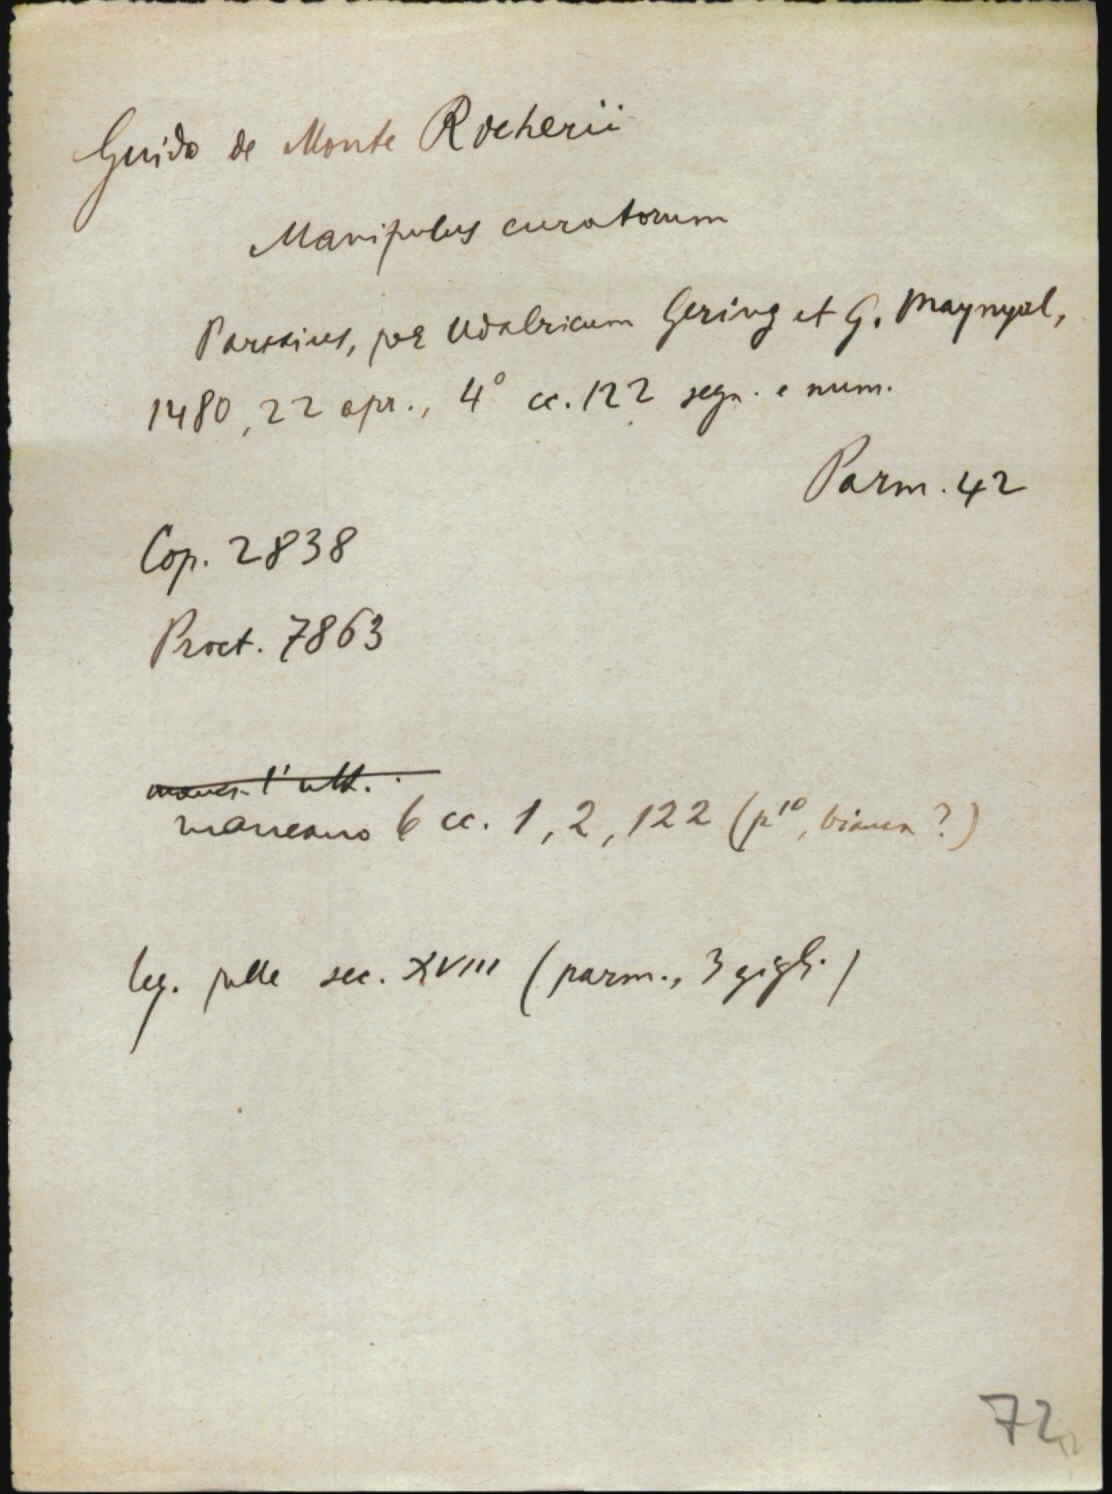 Guido de Monte Rocherii
Manipulus curatorum
Parisius, per Udalricum Gering et G. Maynyal,
1480, 22 apr., 4° cc. 122 segn. e num.
Parm. 42
Cop. 2838
Proct. 7863
manca l'ult.
mancano 6 cc. 1, 2, 122 (p¹⁰, bianca?)
leg. pelle sec. XVIII (parm., 3 gigli)
72